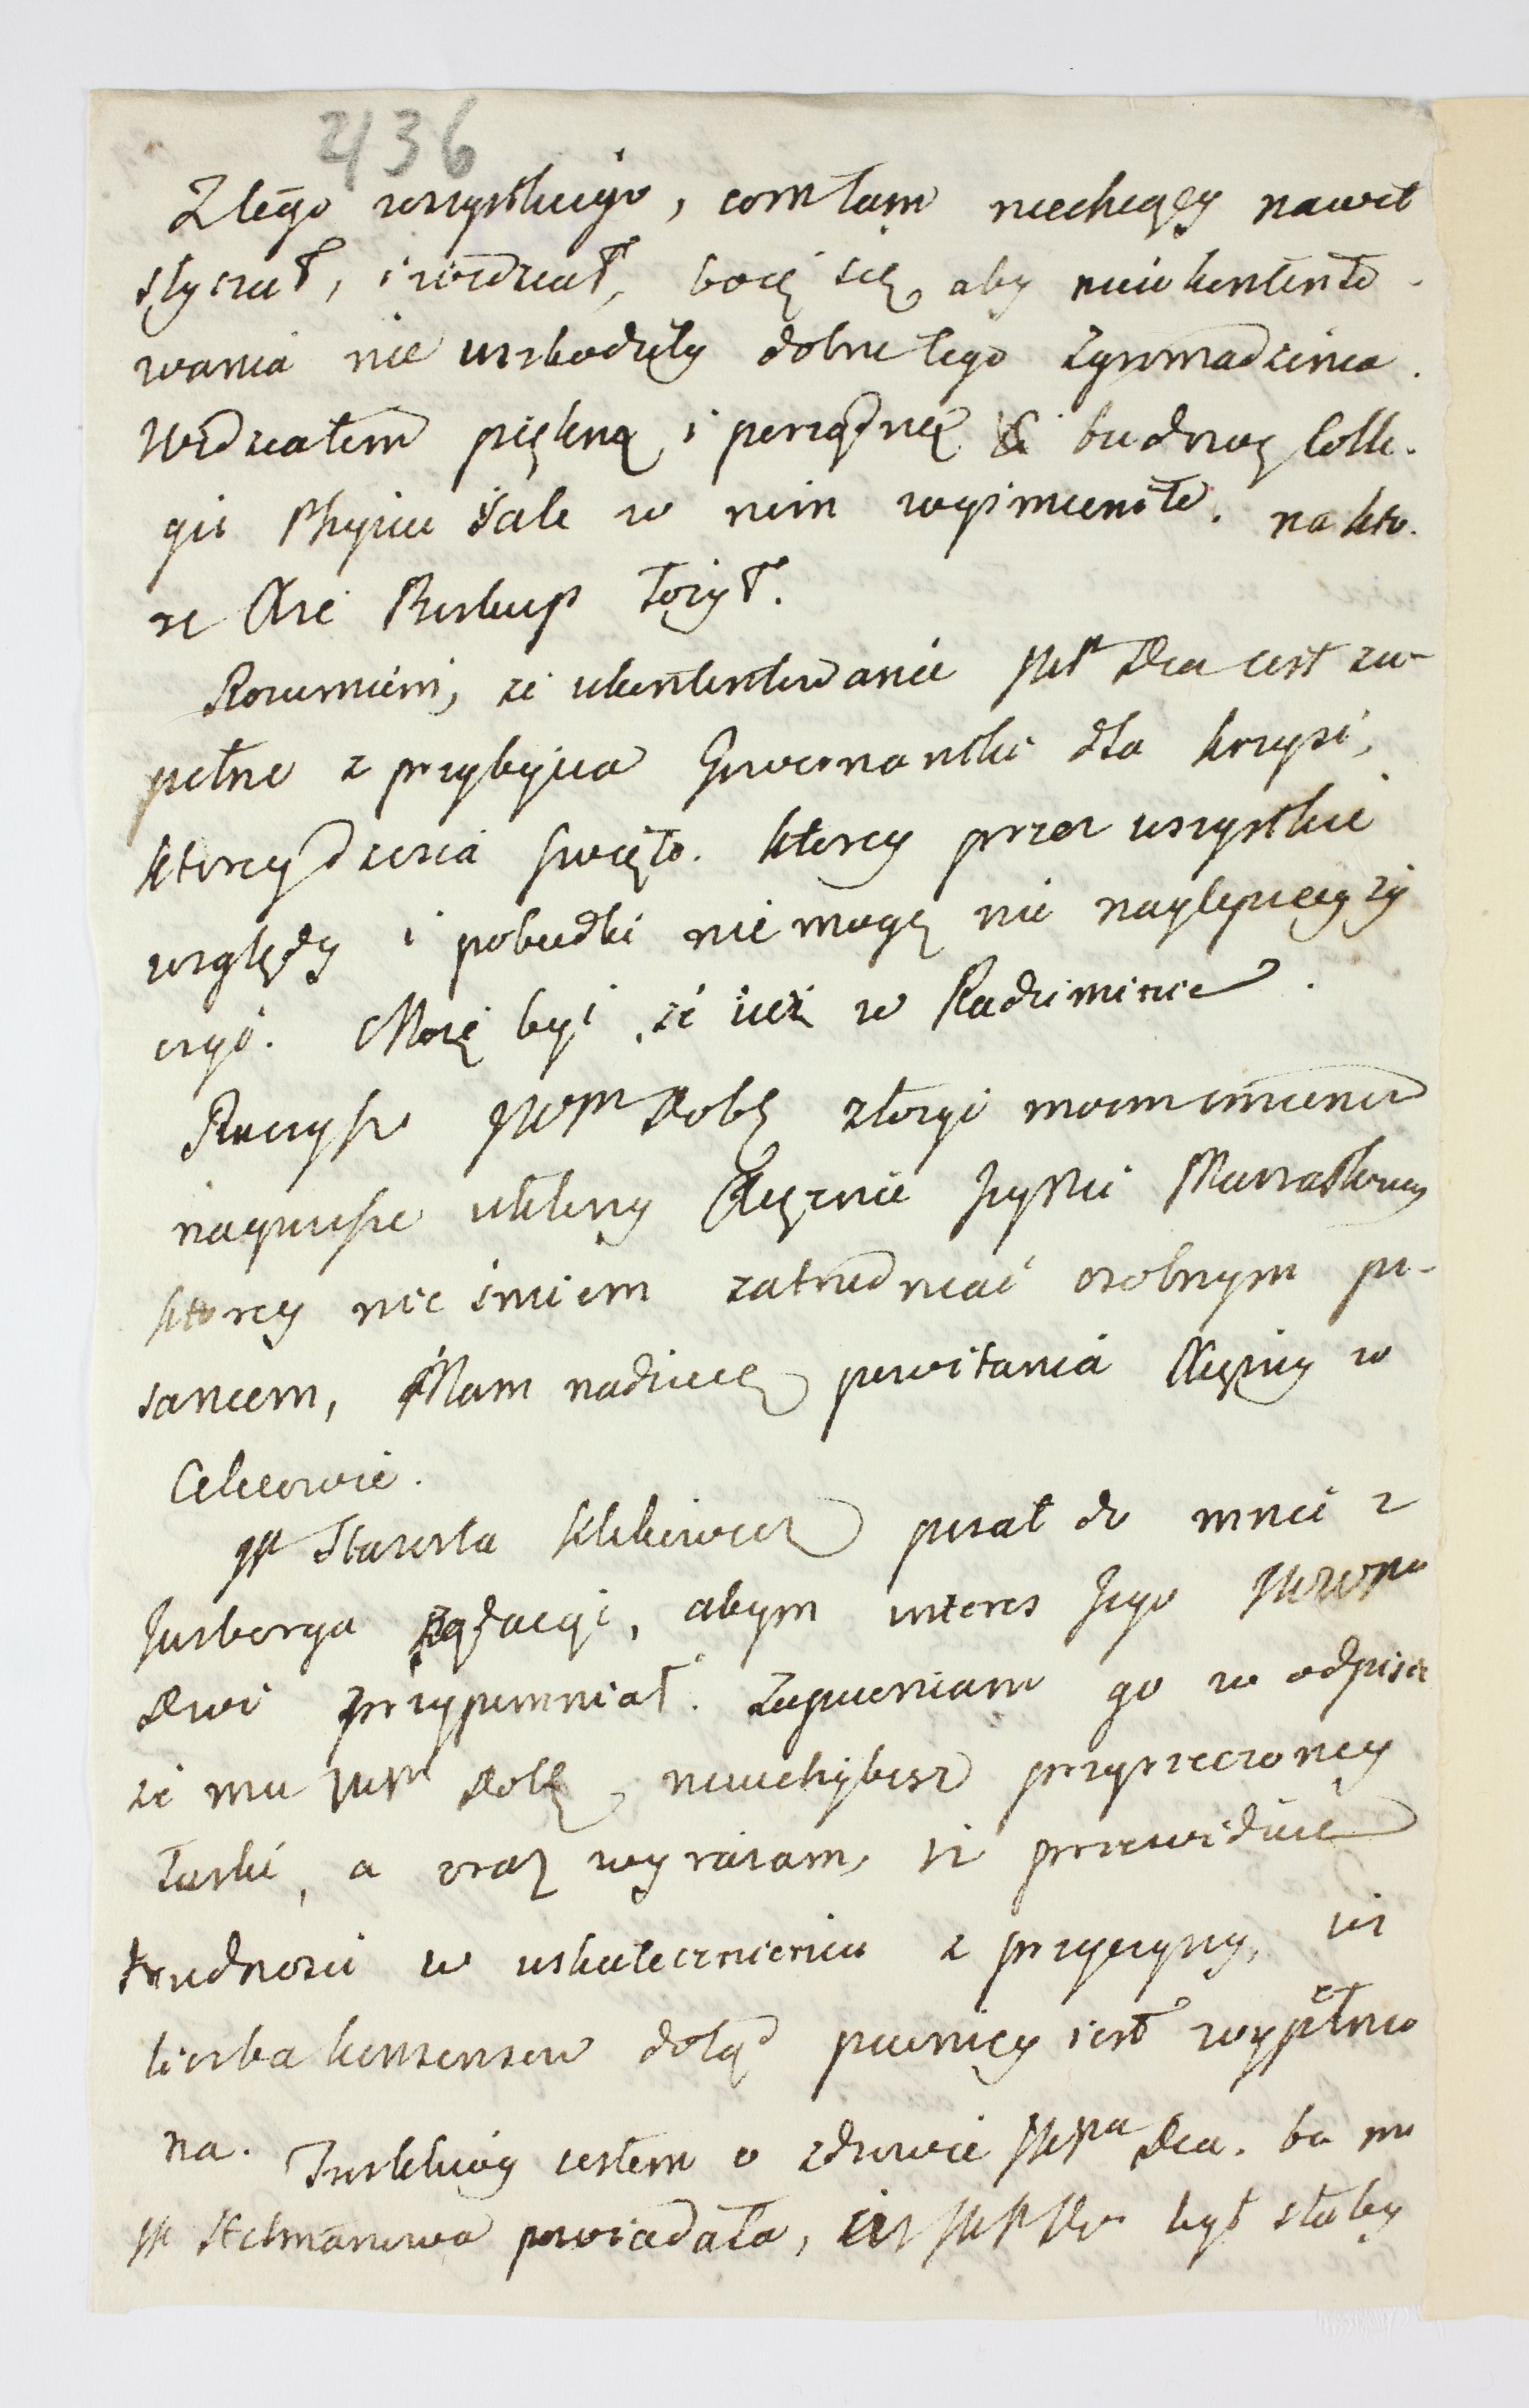 2136
Z tego wszystkiego, com tam niechcący nawet
słyszał, i widział, boię się, aby nieukontento-
wania nie uszkodziły dobru tego zgromadzenia.
Widziałem piękną i porządną budowę Colle-
gii Phyzice Sale w nim wyśmienite. na kto-
re Xże Biskup łożył.
Rozumiem, że ukontentowanie JWP Dza iest zu-
pełne z przybycia Guwernantki dla Krysi,
ktorey dzisia święto. ktorey przez wszystkie
względy i pobudki nie mogę nie naylepiey zy
czyć. Może być, że iuż w Radziminie.
Racysz JWPm Dobę złożyć moim imieniem
nayniższe ukłony Xiężnie Jeymci Marszałkowy
ktorey nie śmiem zatrudniać osobnym pi-
saniem, Mam nadzieię powitania Xiężny w
Celeiowie.
JP Starosta Klikiewicz pisał do mnie z
Jurborga żądaiąc, abym interes Jego JWWPu
Dwi przypomniał. Zapewniam go w odpisie
że mu JWPan Dobę nieuchybisz przyrzeczoney
łaski, a oraz wyrażam, iż przewiduię
trudności w uskutecznieniu z przyczyny, iż
liczba konsensow dotąd pewnicy iest wypełnio
na. Troskliwy iestem o zdrowie JWPana Dza. bo mi
JP Hetmanowa powiadała, iż JWP Dz. był słaby